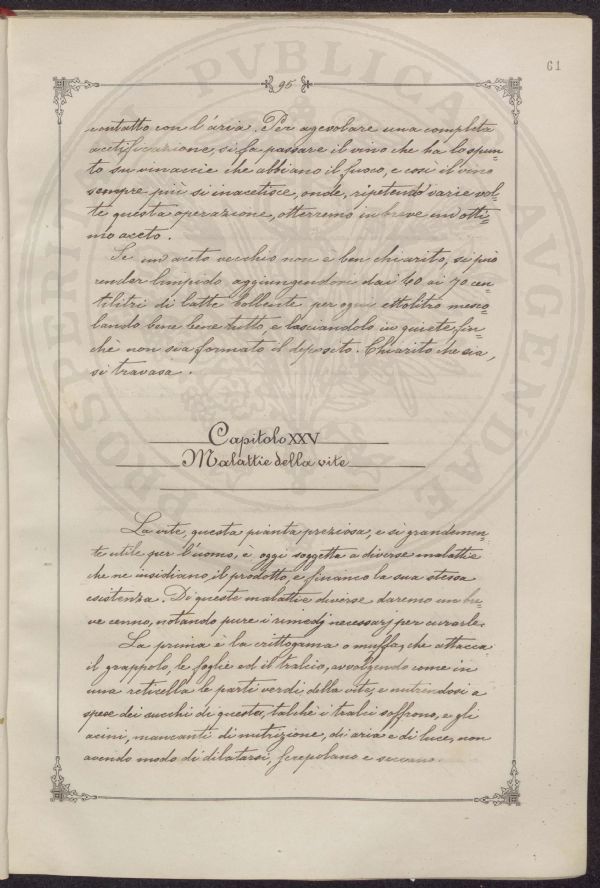 61
95
contatto con l'aria. Per agevolare una completa
acetificazione, si fa passare il vino che ha lo spun=
to su vinaccie che abbiano il fuoco, e così il vino
sempre più si inacetisce, onde, ripetendo varie vol=
te questa operazione, otterremo in breve un'otti=
mo aceto.
Se un'aceto vecchio non è ben chiarito, si può
render limpido aggiungendone dai 60 ai 70 cen=
tilitri di latte bollente per ogni ettolitro mesco=
lando bene bene tutto, e lasciandolo in quiete, fin=
chè non sia formato il deposito. Chiarito che sia,
si travasa.
Capitolo XXV
Malattie della vite
La vite, questa pianta preziosa, e sì grandemen=
te utile per l'uomo, e oggi soggetta a diverse malattie
che ne insidiano, il prodotto, e financo la sua stessa
esistenza. Di queste malattie diverse daremo un bre=
ve cenno, notando pure i rimedj necessarj per curarle.
La prima è la crittogama o muffa, che attacca
il grappolo, le foglie ed il tralcio, avvolgendo come in
una reticella le parti verdi della vite, e nutrindosi a
spese dei succhi di questa, talchè i tralci soffrono, e gli
acini, mancanti di nutrizione, di aria e di luce, non
avendo modo di dilatarsi, screpolano e seccano.
PROSPERITATI PVBLICAE AVGENDAE